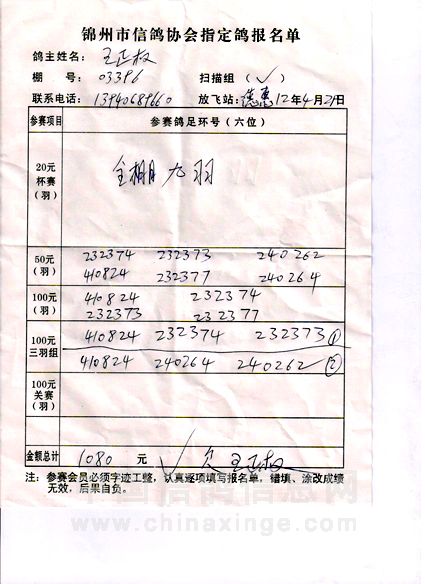 锦州市信鸽协会指定鸽报名单
鸽主姓名： 王正权
棚 号： 03396 扫描组（✓）
联系电话： 13940689660 放飞站：德惠 12年4月29日
参赛项目 参赛鸽足环号（六位）
20元
杯赛
（羽）
全棚九羽
50元
（羽）
232374 232373 240262
410824 232377 240264
100元
（羽）
410824 232374
232373 232377
100元
三羽组
410824 232374 232373①
410824 240264 240262②
100元
关赛
（羽）
金额总计 1080 元 ✓ 欠 王正权
注：参赛会员必须字迹工整，认真逐项填写报名单，错填、涂改成绩
无效，后果自负。
中国信鸽信息网
www.chinaxinge.com